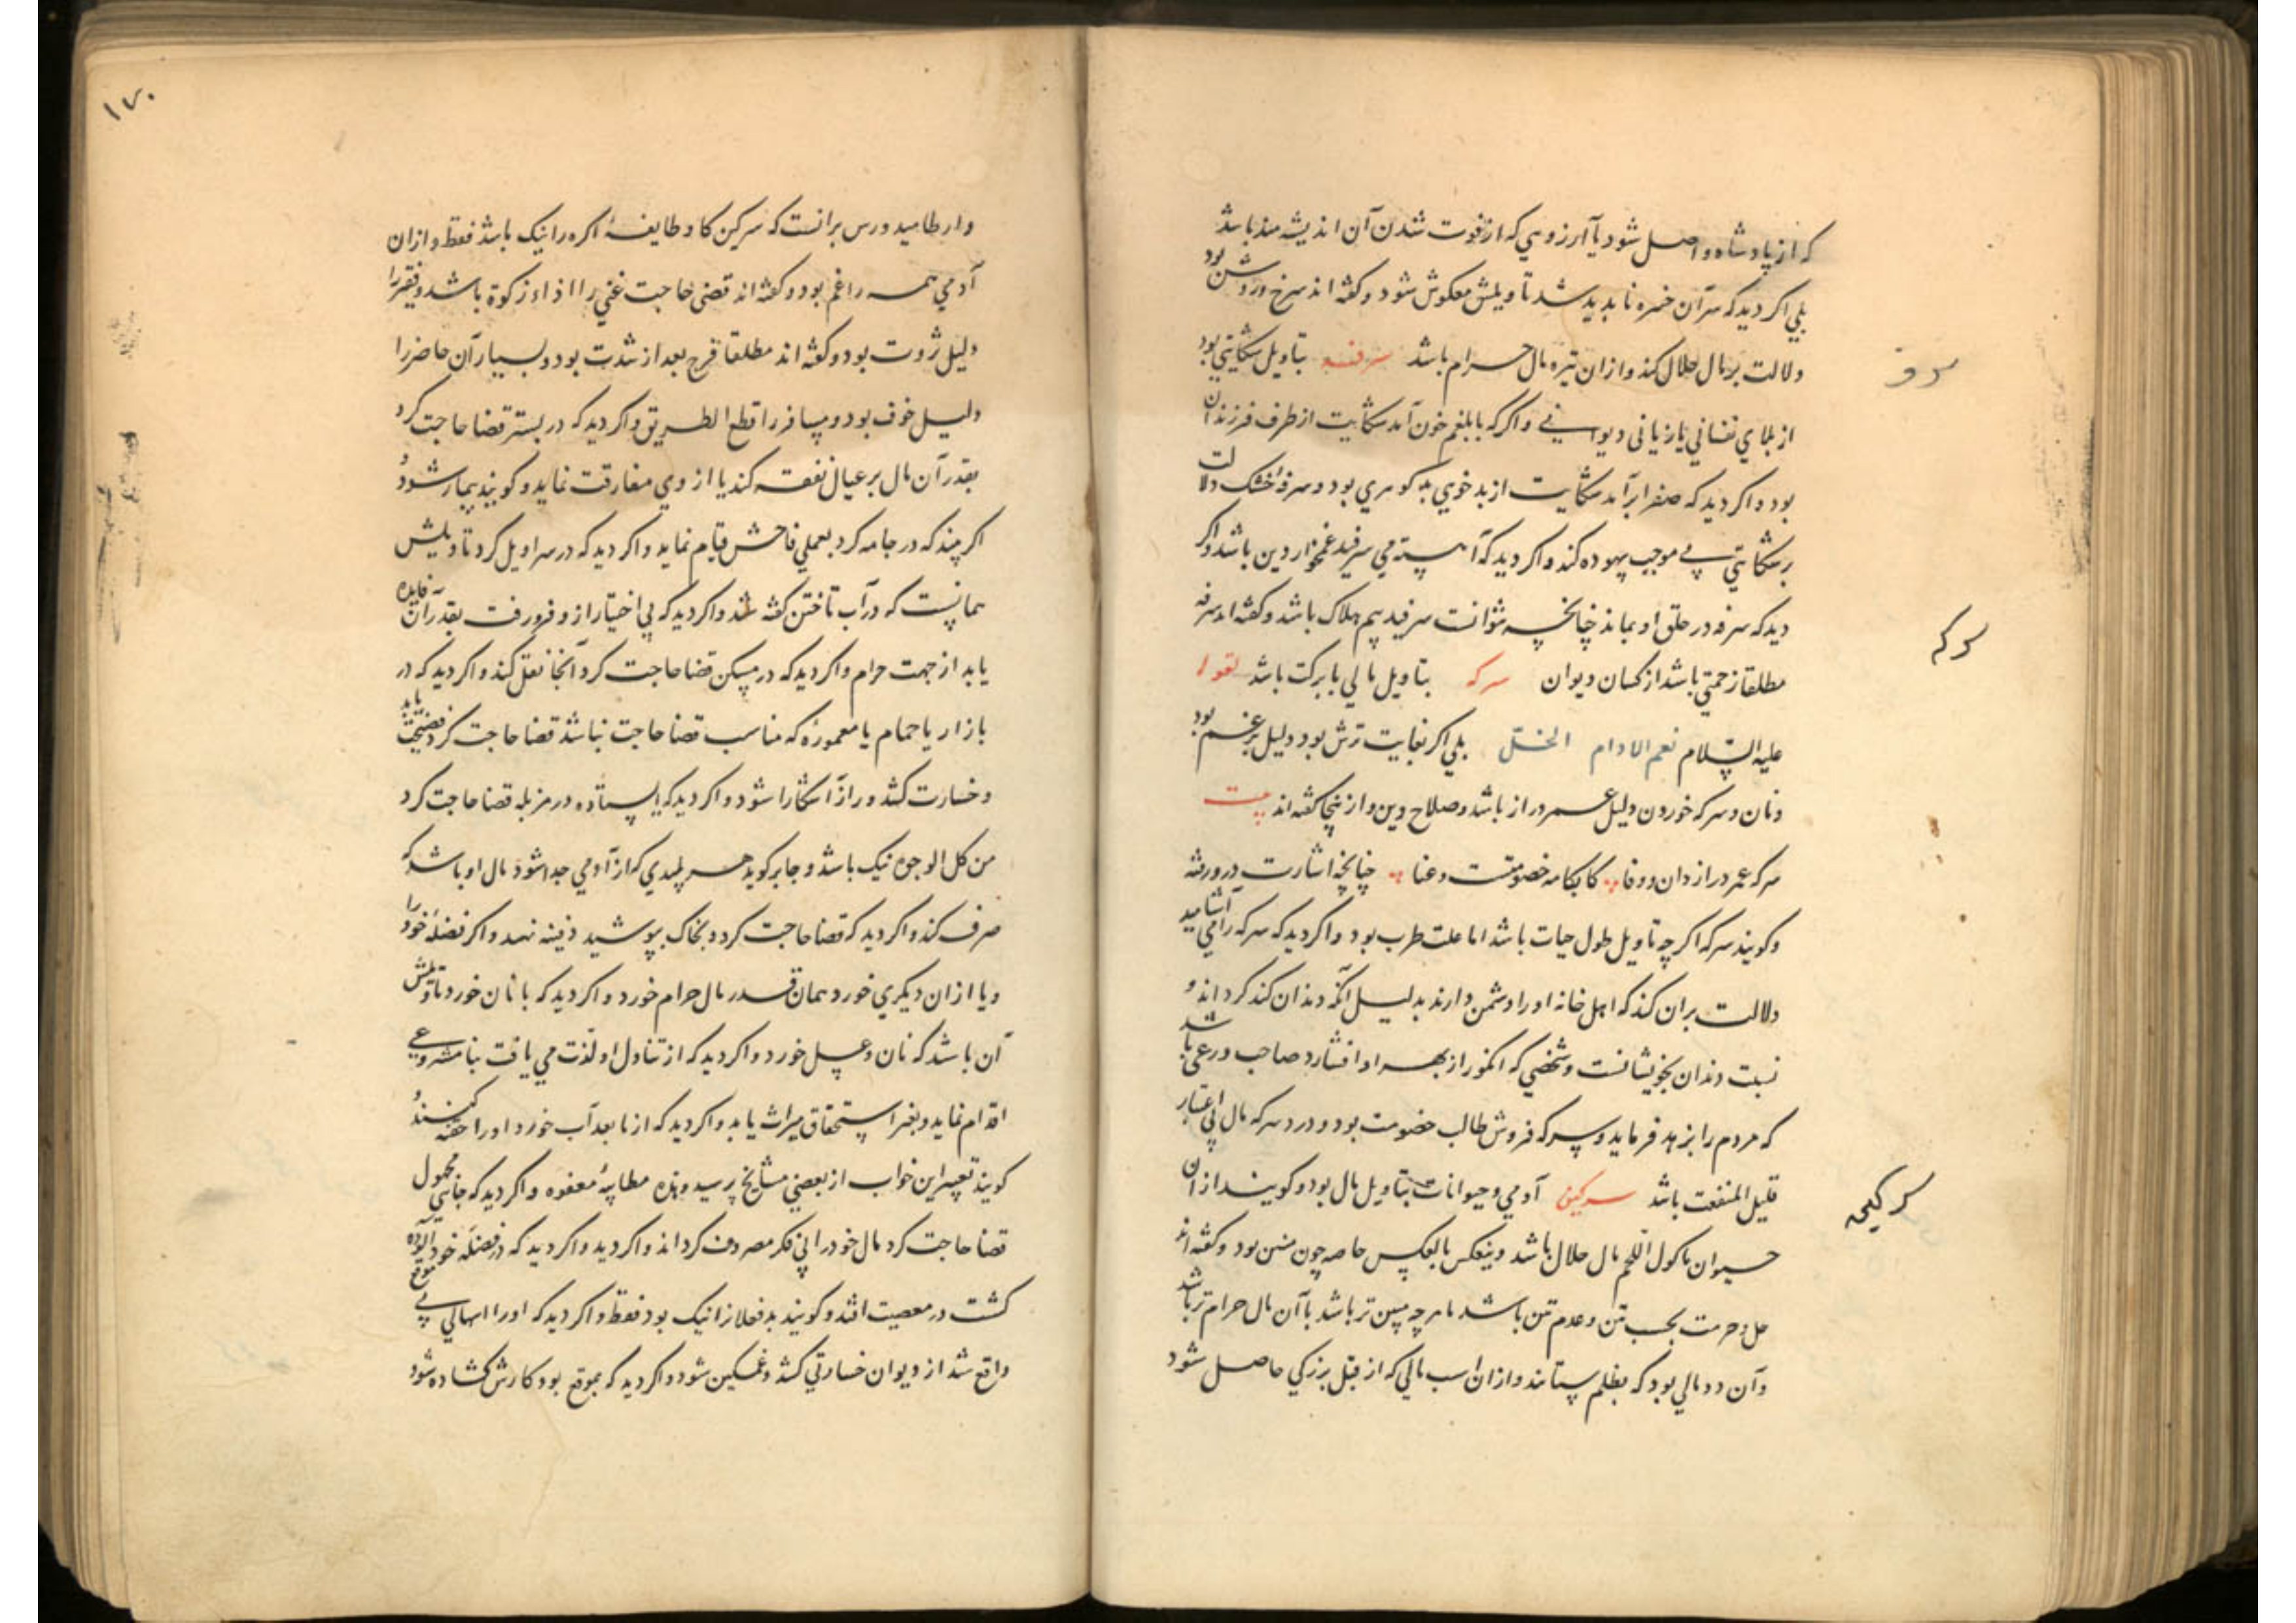 که از پادشاه واصل شود یا آرزوهی که از فوت شدن آن اندیشه مند باشد
بلی اگر دید که سر آن خمره ناپدید شد تاویلش معکوش شود و کفته اند سرخ و روشن بود
دلالت بر مال حلال کند و از ان تیره مال حرام باشد سرفه بتاویل شکایتی بود
از بلای نفسانی یا زیانی دیوانی و اگر که با بلغم خون آمد شکایت از طرف فرزندان
بود و اکر دید که صفرا برآمد شکایت از بد خویی بد کوهری بود و سرفهٔ خشک دلالت
بر شکایتی بی موجب بیهوده کند و اکر دید که آهسته می سرفید غمخوار دین باشد و اکر
دید که سرفه در حلق او بماند چنانچه نتوانست سرفید بیم هلاک باشد و کفته اند سرفه
مطلقا زحمتی باشد از کسان دیوان سرکه بتاویل مالی با برکت باشد لقوله
سرفه
سرکه
علیه السّلام نعم الادام الخلّ بلی اکر بغایت ترش بود دلیل بر غم بود
و نان و سرکه خوردن دلیل عمر دراز باشد و صلاح دین و از اینجا کفته اند بیت
سرکه عمر دراز دان و وفا کابکامه خصومتست و عنا چنانچه اشارت در ورفته
و کویند سرکه اکر چه تاویل طول حیات باشد اما علت طرب بود و اکر دید که سرکه را می آشامید
دلالت بران کند که اهل خانه او را دشمن دارند بدلیل آنکه دندان کند کرداند و
نسبت دندان بخویشانست و شخصی که انکور از بهر او افشارد صاحب ورعی باشد
که مردم را بزهد فرماید و سرکه فروش طالب خصومت بود و درد سرکه مال بی اعتبار
قلیل المنفعت باشد سرکین آدمی و حیوانات بتاویل مال بود و کویند از ان
سرکین
حیوان ماکول اللحم مال حلال باشد و بنعکس بالعکس خاصه چون منتن بود و کفته اند
حل و حرمت بحسب نتن و عدم نتن باشد هر چه منتن تر باشد با آن مال حرام تر باشد
و آن دو مالی بود که بظلم ستانند و از ان اسب مالی که از قبل بزرکی حاصل شود
۱۷۰
وارطامیدورس برانست که سرکین کاو طایفهٔ اکره را نیک باشد فقط و از ان
آدمی همه را غم بود و کفته اند قضی حاجت غنی را اداء زکوة باشد و فقیر را
دلیل ثروت بود و کفته اند مطلقا فرج بعد از شدت بود و بسیار آن حاضر را
دلیل خوف بود و مسافر را قطع الطریق و اکر دید که در بستر قضا حاجت کرد
بقدر آن مال بر عیال نفقه کند یا از وی مفارقت نماید و کویند بیمار شود و
اکر چند که در جامه کرد بعملی فاحش قیام نماید و اکر دید که در سراویل کرد تاویلش
همانست که در آب تاختن کفته شد و اکر دید که بی اختیار از و فرو رفت بقدر آن فایده
یابد از جهت حرام و اکر دید که در مسکن قضا حاجت کرد آنجا نقل کند و اکر دید که در
بازار یا حمام یا معمورهٔ که مناسب قضا حاجت نباشد قضا حاجت کرد فضیحت یابد
و خسارت کشد و راز آشکارا شود و اکر دید که ایستاده در مزبله قضا حاجت کرد
من کل الوجوه نیک باشد و جابر کوید هر پلیدی که از آدمی جدا شود مال او باشد که
صرف کند و اکر دید که قضا حاجت کرد و بخاک بپوشید دفینه نهد و اکر فضلهٔ خود را
و یا از ان دیکری خورد همان قدر مال حرام خورد و اکر دید که با نان خورد تاویلش
آن باشد که نان و عسل خورد و اکر دید که از تناول او لذت می یافت بنا مشروعی
اقدام نماید و بغیر استحقاق میراث یابد و اکر دید که از ما بعد آب خورد او را حقنه کنند و
کویند تعبیر این خواب از بعضی مشایخ پرسید و هذه مطایبهٔ معفوه و اکر دید که جای مجهول
قضا حاجت کرد مال خود را بی فکر مصروف کرداند و اکر دید که در فضلهٔ خود آلوده
کشت در معصیت افتد و کویند بد فعلانرا نیک بود فقط و اکر دید که او را اسهالی بی موقع
واقع شد از دیوان خسارتی کشد و غمکین شود و اکر دید که بموقع بود کارش کشاده شود